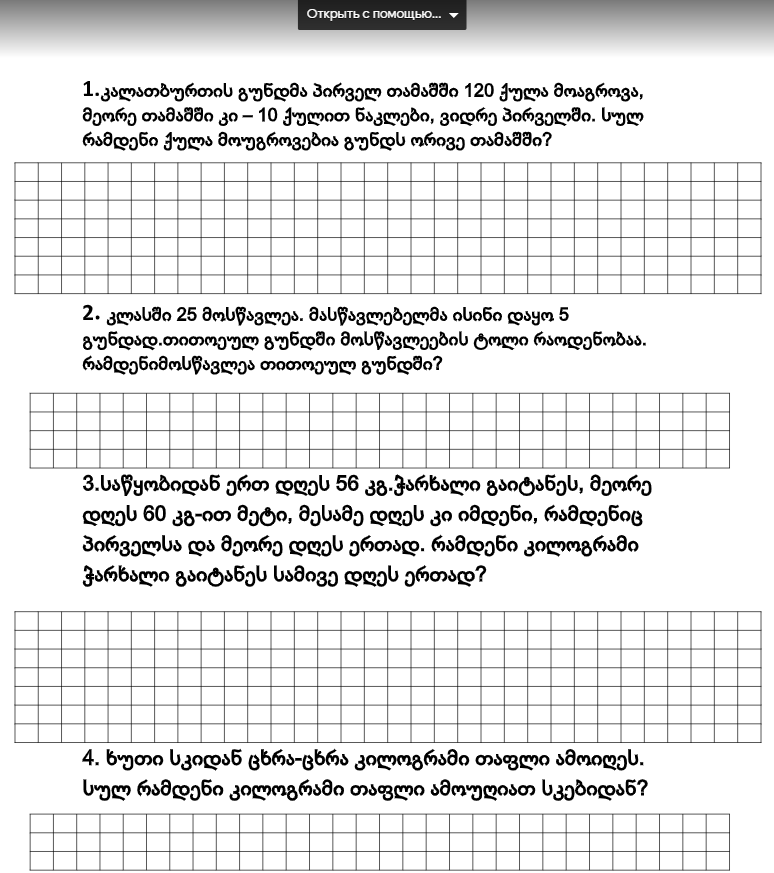 Открыть с помощью...
1.კალათბურთის გუნდმა პირველ თამაშში 120 ქულა მოაგროვა,
მეორე თამაშში კი – 10 ქულით ნაკლები, ვიდრე პირველში. სულ
რამდენი ქულა მოუგროვებია გუნდს ორივე თამაშში?
2. კლასში 25 მოსწავლეა. მასწავლებელმა ისინი დაყო 5
გუნდად.თითოეულ გუნდში მოსწავლეების ტოლი რაოდენობაა.
რამდენიმოსწავლეა თითოეულ გუნდში?
3.საწყობიდან ერთ დღეს 56 კგ.ჭარხალი გაიტანეს, მეორე
დღეს 60 კგ-ით მეტი, მესამე დღეს კი იმდენი, რამდენიც
პირველსა და მეორე დღეს ერთად. რამდენი კილოგრამი
ჭარხალი გაიტანეს სამივე დღეს ერთად?
4. ხუთი სკიდან ცხრა-ცხრა კილოგრამი თაფლი ამოიღეს.
სულ რამდენი კილოგრამი თაფლი ამოუღიათ სკებიდან?